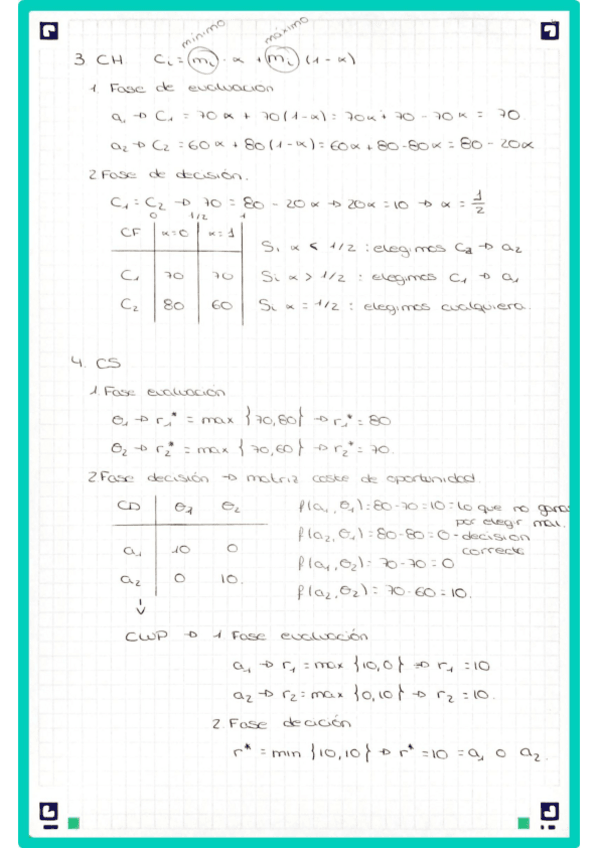 mínimo máximo
3 CH Ci = (mi) · α + (mi) (1 - α)
1. Fase de evaluación
a₁ → C₁ = 70α + 70(1-α) = 70α + 70 - 70α = 70.
a₂ → C₂ = 60α + 80(1-α) = 60α + 80 - 80α = 80 - 20α
2 Fase de decisión.
C₁ = C₂ → 70 = 80 - 20α → 20α = 10 → α = 1/2
0 1/2 1
CF α=0 α=1
Si α < 1/2 : elegimos C₂ → a₂
C₁ 70 70 Si α > 1/2 : elegimos C₁ → a₁
C₂ 80 60 Si α = 1/2 : elegimos cualquiera.
4. CS
1. Fase evaluación
θ₁ → r₁* = max {70,80} → r₁* = 80
θ₂ → r₂* = max {70,60} → r₂* = 70.
2 Fase decisión → matriz coste de oportunidad.
CD θ₁ θ₂ f(a₁, θ₁) = 80-70 = 10 = lo que no gana
por elegir mal.
f(a₂, θ₁) = 80-80 = 0 - decisión
correcta
a₁ 10 0 f(a₁, θ₂) = 70-70 = 0
a₂ 0 10. f(a₂, θ₂) = 70-60 = 10.
↓
CWP → 1 Fase evaluación
a₁ → r₁ = max {10,0} → r₁ = 10
a₂ → r₂ = max {0,10} → r₂ = 10.
2. Fase decición
r* = min {10,10} → r* = 10 = a₁ o a₂.